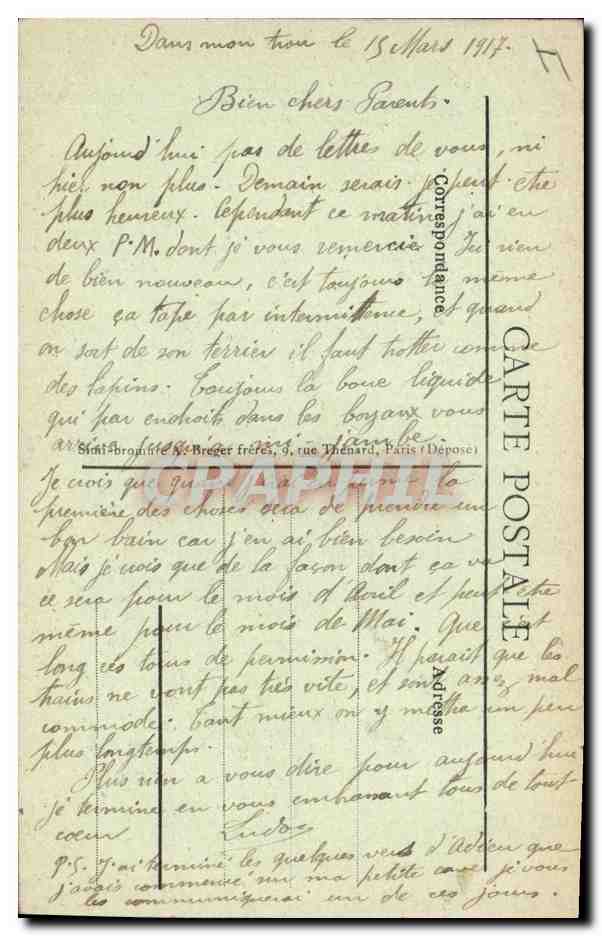 Dans mon trou le 15 Mars 1917.
Bien chers Parents.
Aujourd'hui pas de lettres de vous, ni
hier non plus. Demain serais-je peut-être
plus heureux. Cependant ce matin j'ai eu
deux P.M. dont je vous remercie. Ici rien
de bien nouveau, c'est toujours la même
chose ça tape par intermittence, et quand
on sort de son terrier il faut trotter comme
des lapins. Toujours la boue liquide
qui par endroits dans les boyaux vous
arrive jusqu'à mi-jambe.
Simi-bromure A. Breger frères, 9, rue Thénard, Paris (Déposé)
Je crois que la
première des choses sera de prendre un
bon bain car j'en ai bien besoin
Mais je crois que de la façon dont ça va
ce sera pour le mois d'Avril et peut être
même pour le mois de Mai. Que
long ces tours de permission. Il parait que les
trains ne vont pas très vite, et sont assez mal
commode. Tant mieux on y mettra un peu
plus longtemps.
Plus rien a vous dire pour aujourd'hui
je termine en vous embrassant tous de tout
cœur Ludo
P.S. J'ai terminé les quelques vers d'Adieu que
j'avais commencé sur ma petite cave je vous
les communiquerai un de ces jours.
CARTE POSTALE
Correspondance
Adresse
CPAPHIL